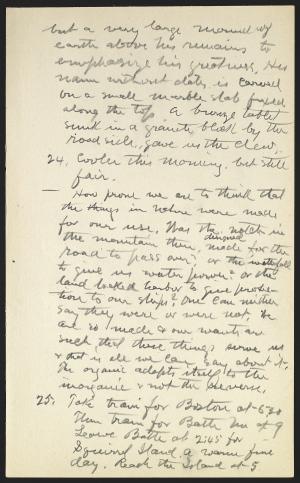 but a very large mound of
earth above his remains to
emphasize his greatness. His
name without date, is carved
on a small marble slab fused
along the top. A bronze tablet
sunk in a granite block by the
roadside, gave us the clew.
24. Cooler this morning, but still
fair.
— How prone we are to think that
the things in nature were made
for our use. Was the notch in
the mountain there designed, made for the
road to pass over; or the waterfall
to give us water power? or the
land locked harbor to give protec-
tion to our ships? One can neither
say they were or were not. We
are so made & our wants are
such that these things serve us
& that is all we can say about it.
The organic adapts itself to the
inorganic & not the reverse.
25. Take train for Boston at 6:30
Then train for Bath Me at 9
Leave Bath at 2:45 for
Squirrel Island, a warm fine
day. Reach the Island at 5